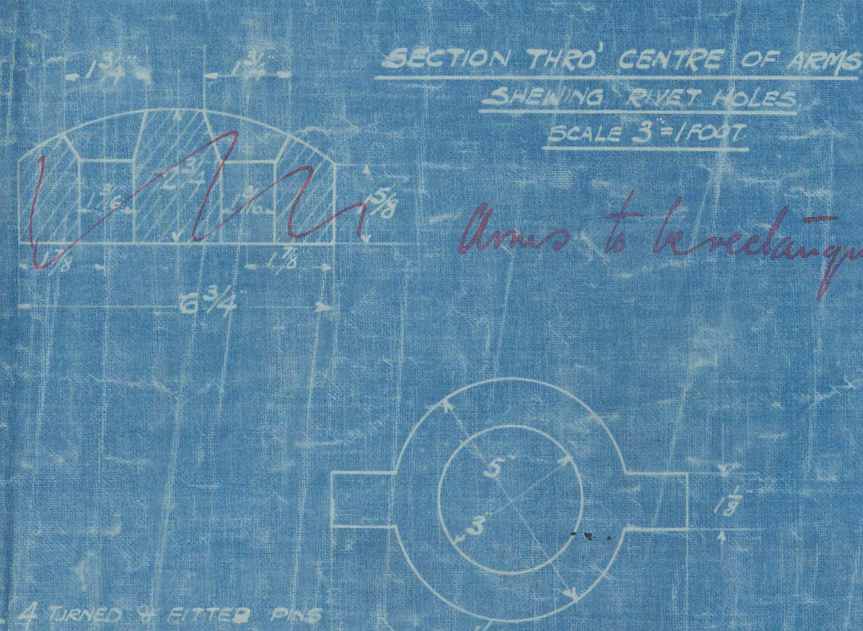 SECTION THRO' CENTRE OF ARMS
SHEWING RIVET HOLES
SCALE 3" = 1 FOOT
1 3/4"
1 3/4"
2 3/4
1 3/16
1 3/16
5/8
7/8
1 7/8
6 3/4"
Arms to be rectangu
5"
3"
1 1/8"
4 TURNED & FITTED PINS